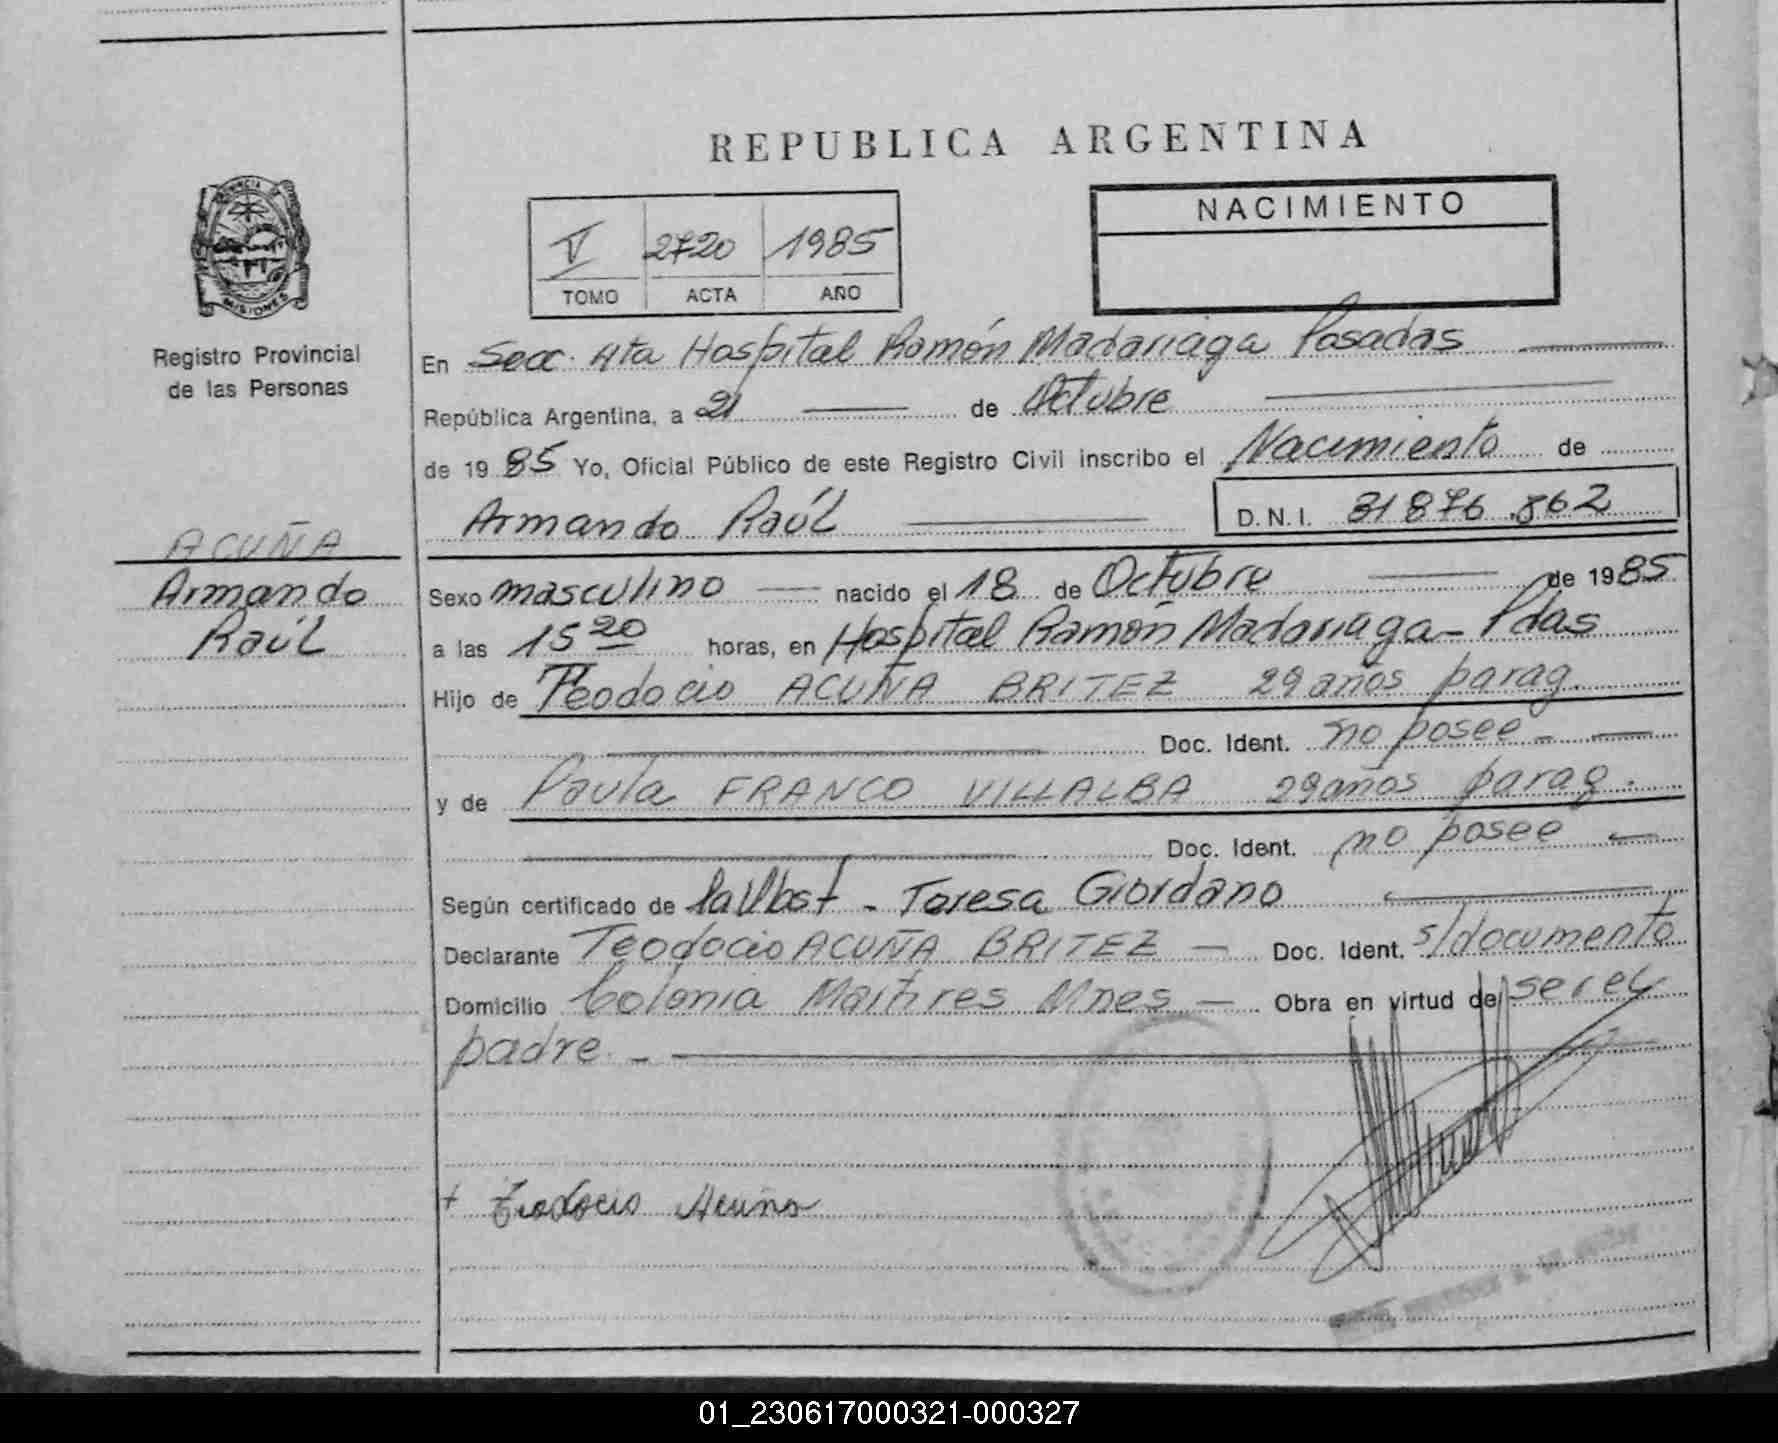 REPUBLICA ARGENTINA
PROVINCIA DE
MISIONES
Registro Provincial
de las Personas
V 2720 1985
TOMO ACTA AÑO
NACIMIENTO
En Secc. 4ta Hospital Ramón Madariaga Posadas
República Argentina, a 21 de Octubre
de 1985 Yo, Oficial Público de este Registro Civil inscribo el Nacimiento de
Armando Raúl
D.N.I. 31 876 .862
ACUÑA
Armando
Raúl
Sexo masculino nacido el 18 de Octubre de 1985
a las 15 20 horas, en Hospital Ramón Madariaga - Pdas
Hijo de Teodocio ACUÑA BRITEZ 29 años parag.
Doc. Ident. no posee -
y de Paula FRANCO VILLALBA 29 años parag.
Doc. Ident. no posee
Según certificado de - Teresa Giordano
Declarante Teodocio ACUÑA BRITEZ - Doc. Ident. s/documento
Domicilio Colonia Martires Mnes - Obra en virtud de ser el
padre. -
+ Teodocio Acuña
01_230617000321-000327